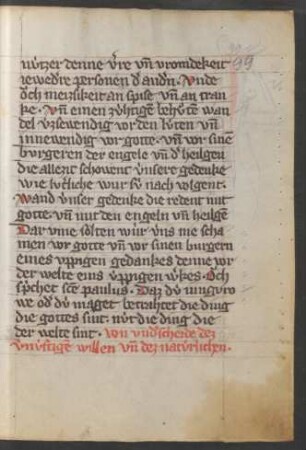 99
nútzer denne v́re vn̄ vromdekeit
iewedre personen d᷑ audn̄. Vnde
och meizsikeit an spise vn̄ an tran
ke. Vn̄ einen zv́htigen behv́te wan
del vzsewendig vor den lv́ten vn̄
innewendig vor gotte. vn̄ vor sinē
bvrgeren der engele vn̄ d᷑ heilgen
die allezit schowent v́nsere gedenke
wie lv́tliche wúr sv́ nach volgent.
Wand v́nser gedenke die redent mit
gotte. vn̄ mit den engeln vn̄ heilgē
Dar vme solten wúr v́ns me scha
men vor gotte vn̄ vor sinen burgern
eines v́ppigen gedankes denne vor
der welte eins v́ppigen w᷑kes. Och
sp᷑chet scē paulus. Daz dv́ iungvro
we od᷑ dv́ maget betrahtet die ding
die gottes sint. nv́t die ding die
der welte sint. Von vnd᷑scheide dez
v́nv́ftigē willen vn̄ dez natv́rlichen.